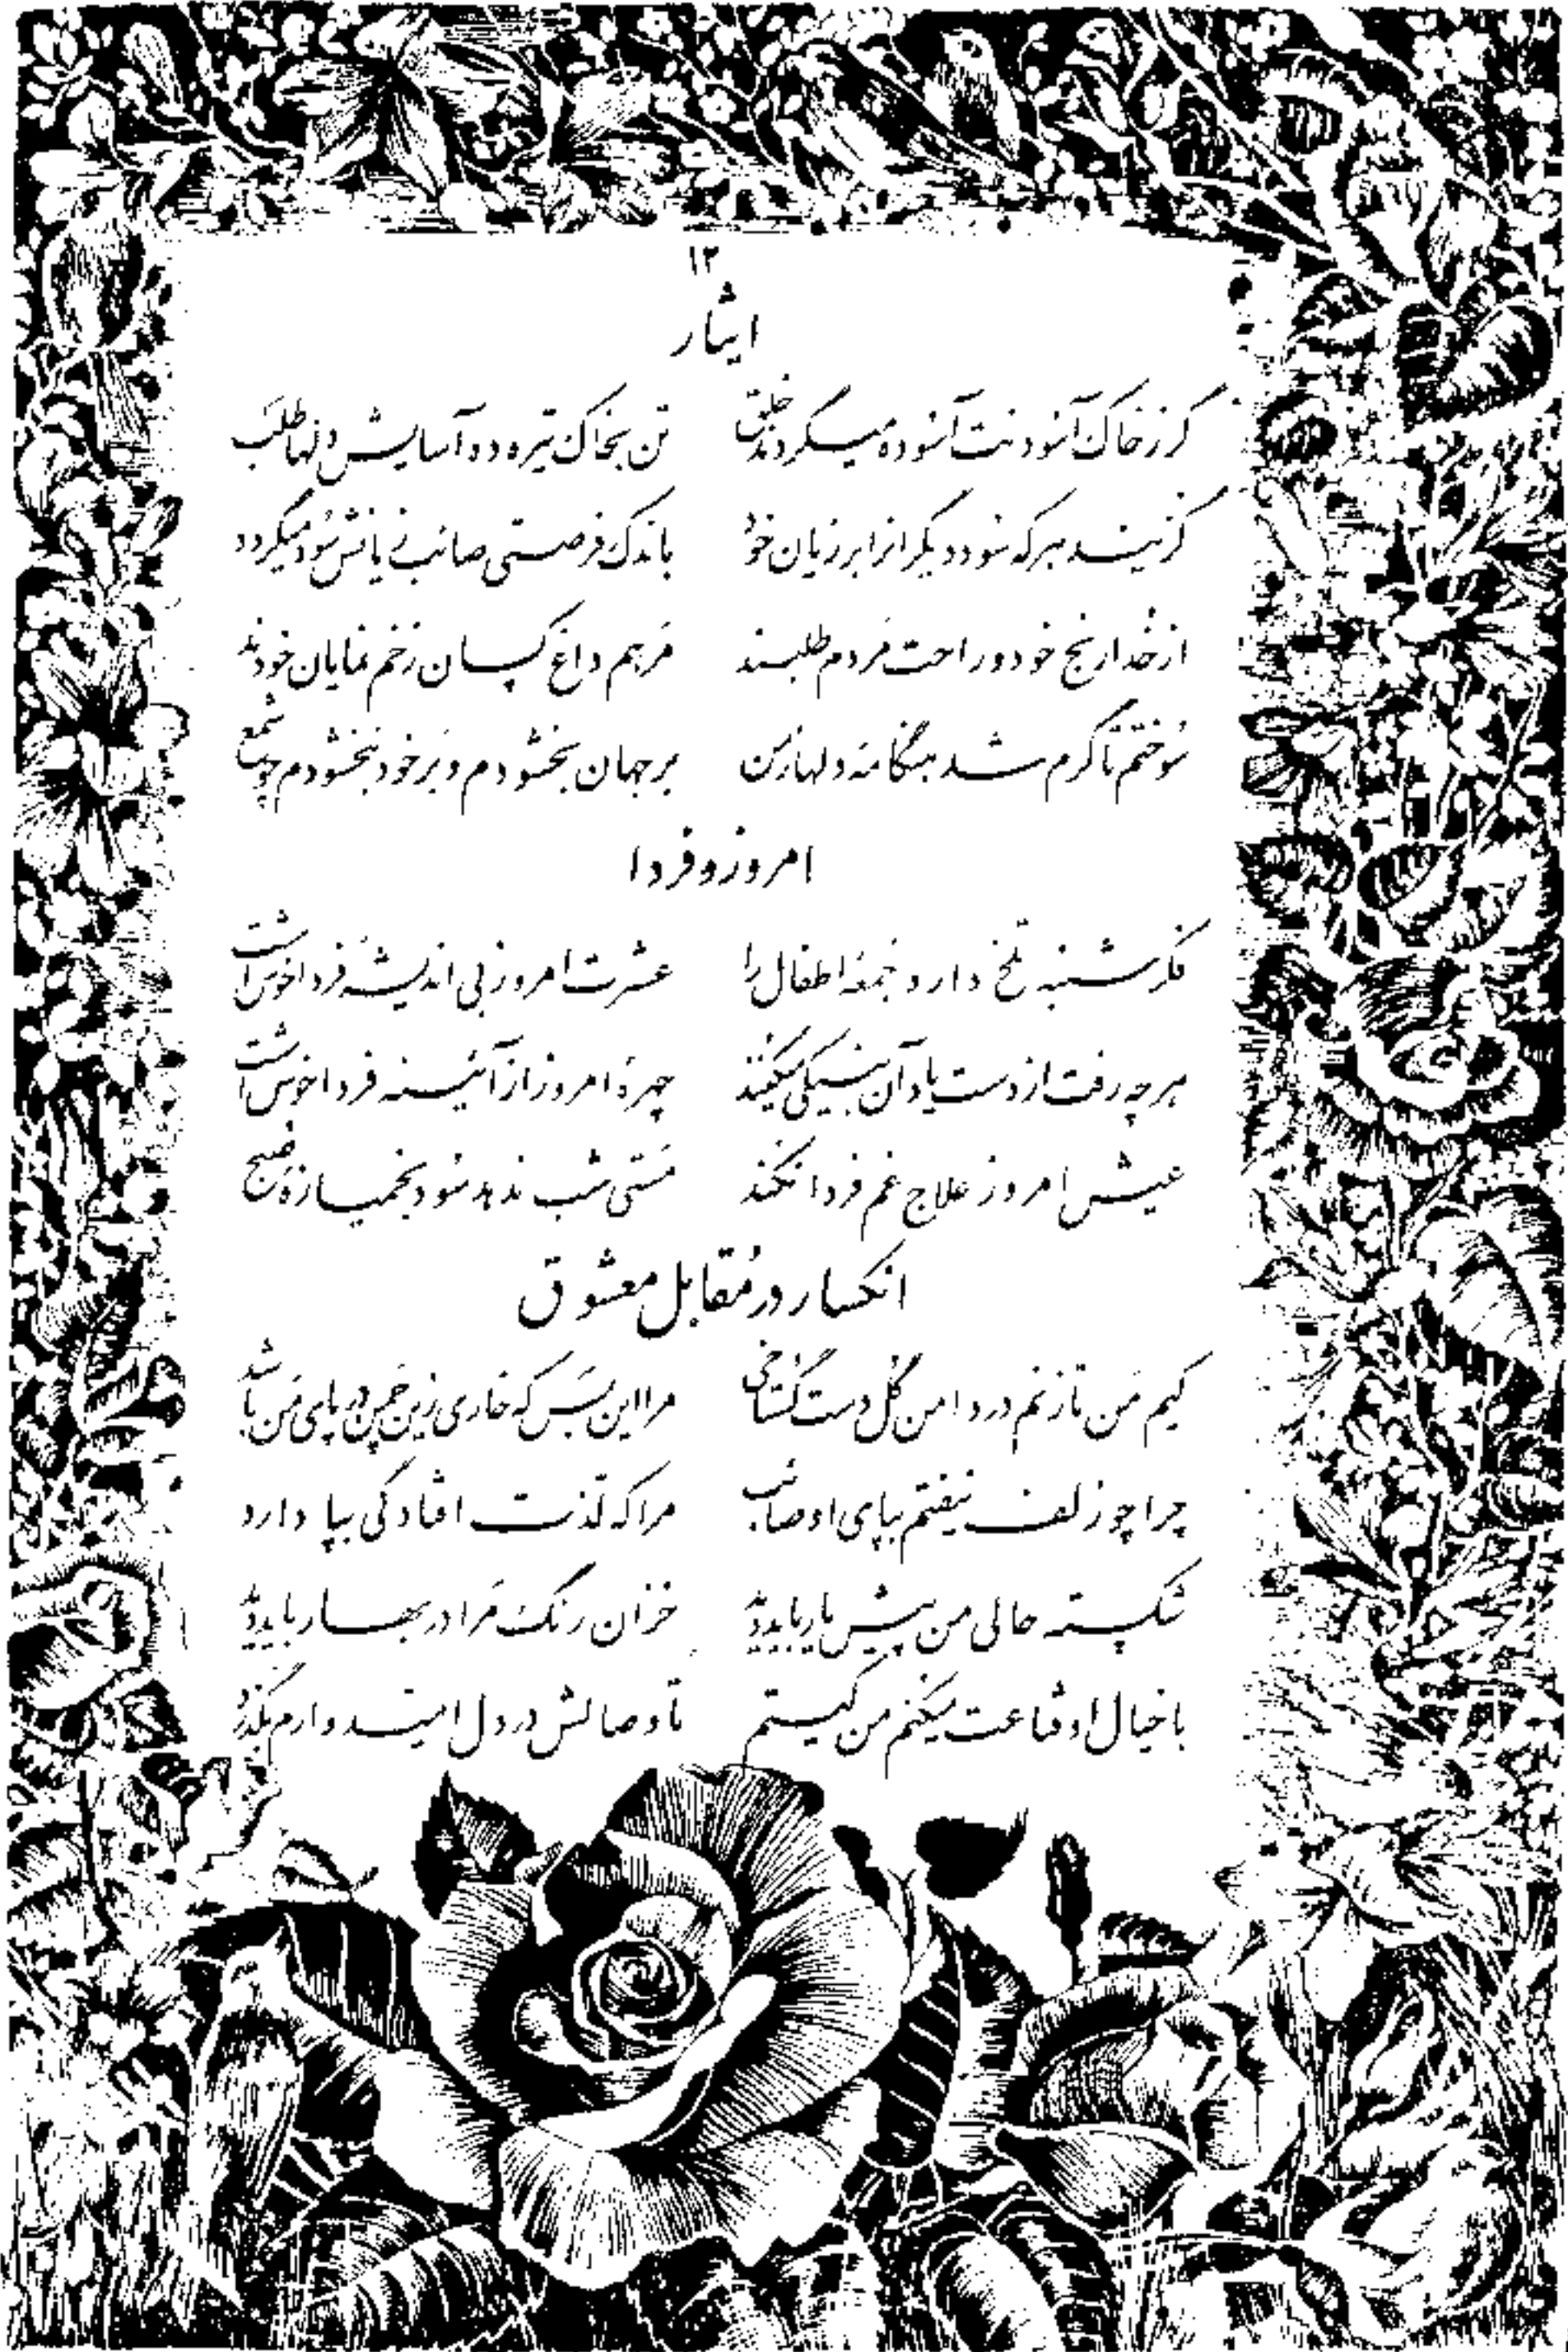 ۱۲
ایثار
گر ز خاک آسودنت آسوده میگردند خلق تن بخاک تیره ده آسایش دلها طلب
گزیند هر که سود دیگرانرا بر زیان خود باندک فرصتی صائب زیانش سود میگردد
از خدا رنج خود و راحت مردم طلبند مرهم داغ کسان زخم نمایان خودند
سوختم تا گرم شد هنگامه دلها ز من بر جهان بخشودم و بر خود نبخشودم چو شمع
امروز و فردا
فکر شنبه تلخ دارد جمعه اطفال را عشرت امروز بی اندیشه فردا خوش است
هر چه رفت از دست یاد آن بنیکی میکنند چهرهٔ امروز از آئینه فردا خوش است
عیش امروز علاج غم فردا نکند مستی شب ندهد سود بخمیازهٔ صبح
انکسار در مقابل معشوق
کیم من تا زنم در دامن گل دست گستاخی مرا این بس که خاری زین چمن در پای من باشد
چرا چو زلف نیفتم بپای او صائب مرا که لذت افتادگی بپا دارد
شکسته حالی من پیش یار باید دید خزان رنگ مرا در بهار باید دید
با خیال او قناعت میکنم من کیستم تا وصالش در دل امیدوارم بگذرد